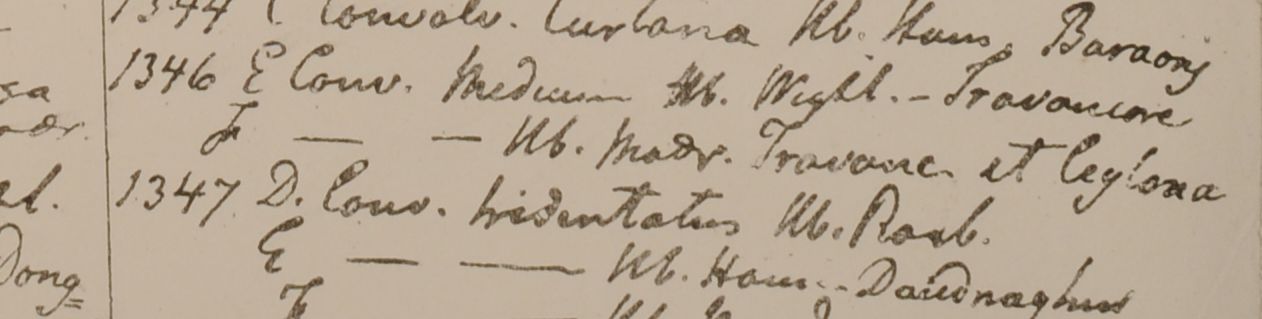 1344 C Convolv. Turbana Hb. Ham. Baraong
1346 E Conv. Medium Hb. Wight. - Travancore
F — — Hb. Madr. Travanc. et Ceylona
1347 D. Conv. tridentatus Hb. Roxb.
E — — Hb. Ham. - Daudnaghur
F
sa
adr.
el.
Dong=